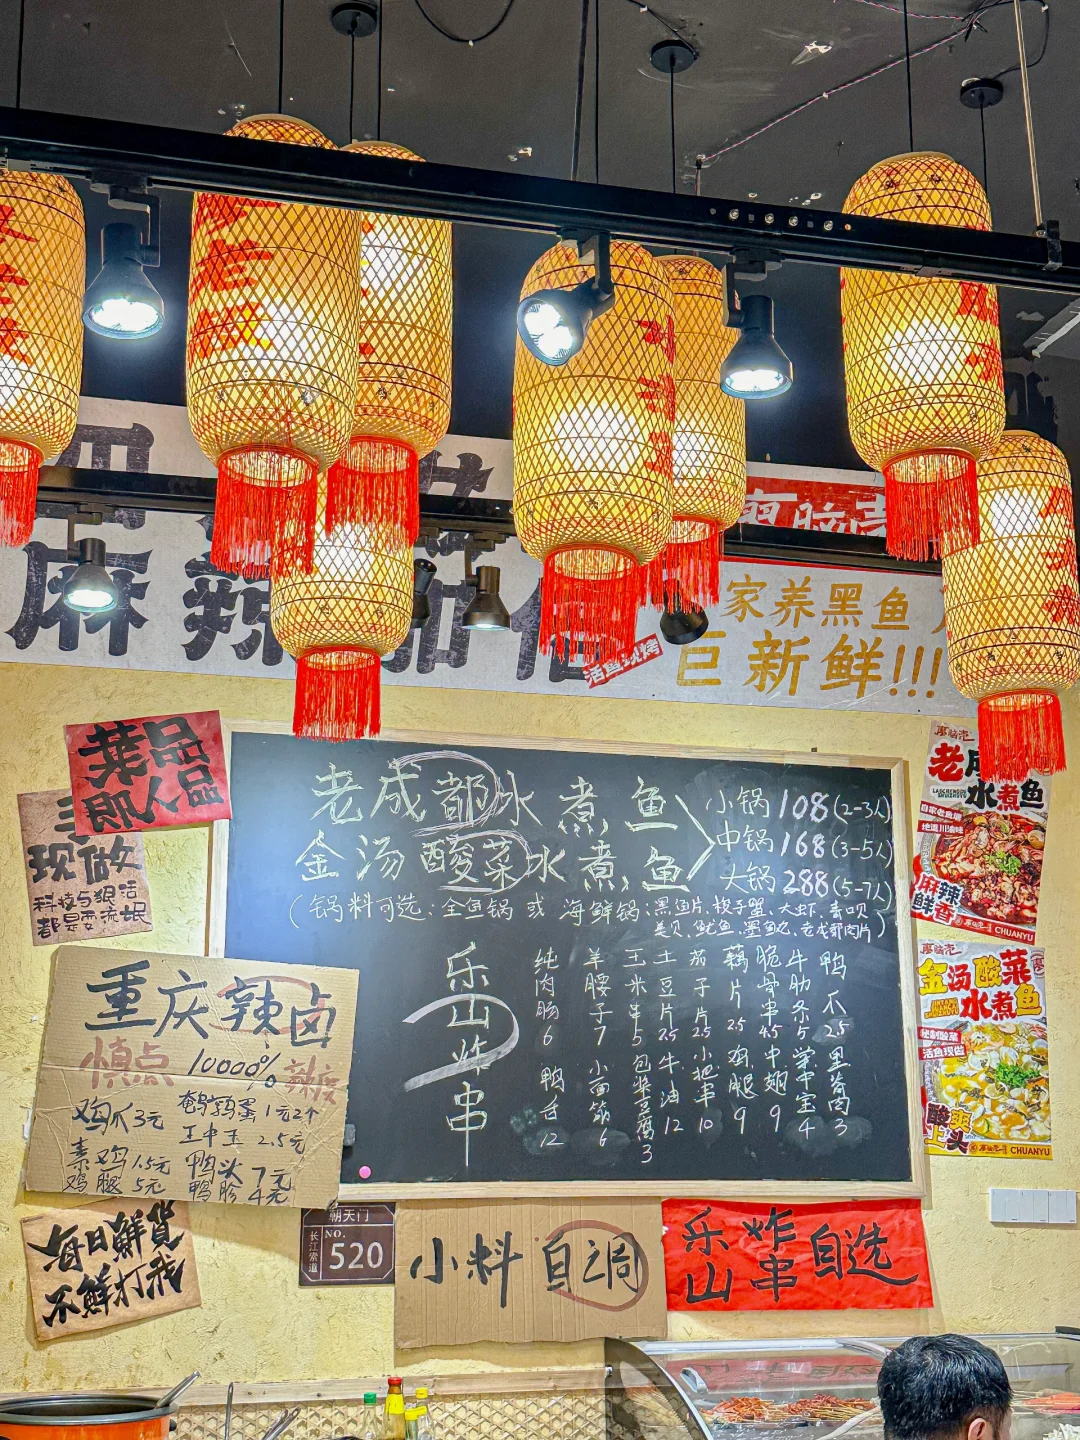 麻辣
家养黑鱼
巨新鲜!!!
活鱼现烤
菜品
即人品
手
现做
科技与狠活
都是耍流氓
老成都水煮鱼
金汤酸菜水煮鱼
小锅108(2-3人)
中锅168(3-5人)
大锅288(5-7人)
(锅料可选:全鱼锅 或 海鲜锅:黑鱼片、梭子蟹、大虾、青口贝
鱿鱼、墨鱼仔、老成都肉片)
乐山炸串
纯肉肠6
鸭舌12
羊腰子7
小面筋6
玉米串5
包浆豆腐3
土豆片2.5
牛油12
茄子片2.5
小把串10
藕片2.5
鸡腿9
脆骨串4.5
中翅9
牛肋条5
掌中宝4
鸭
2.5
里脊肉3
重庆辣卤
慎点 10000% 辣度
鸡爪3元
鹌鹑蛋1元2个
王中王 2.5元
素鸡1.5元
鸭头7元
鸡腿5元
鸭胗4元
每日鲜货
不鲜打我
朝天门
长江索道
NO.
520
小料自调
乐山炸串自选
廖脑壳
水煮鱼
自家老鱼塘
地道川渝味
麻辣鲜香
CHUANYU
廖脑壳
金汤酸菜
水煮鱼
秘制酸菜
活鱼现做
酸爽
上头
CHUANYU